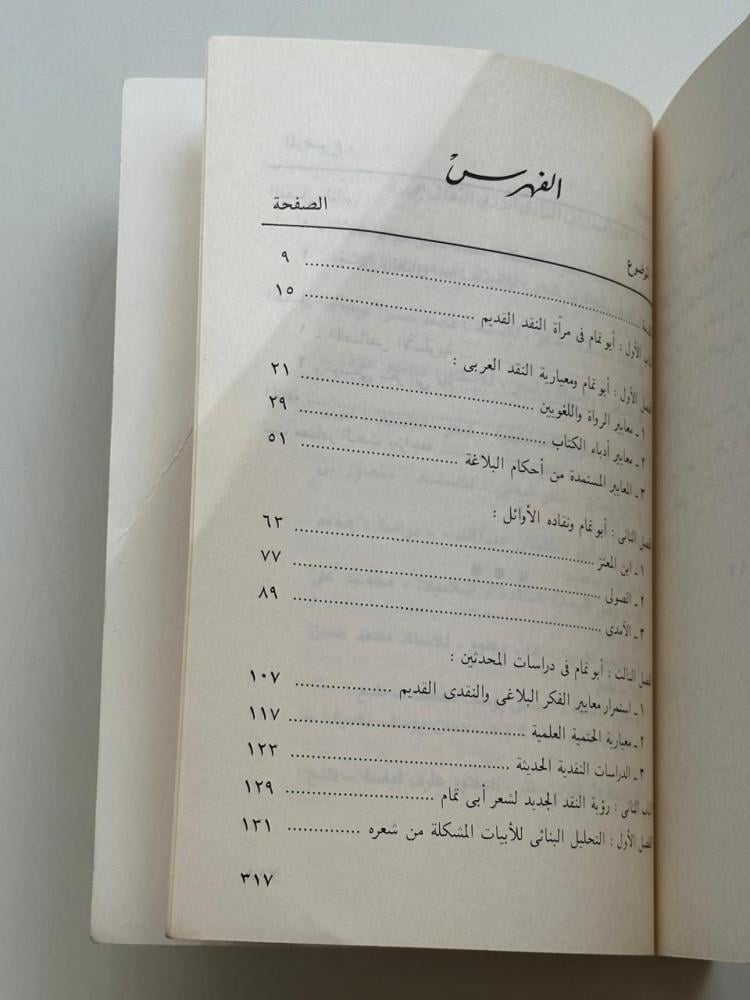 الفهرس
الموضوع الصفحة
مقدمة ........ ٩
الباب الأول : أبو تمام فى مرآة النقد القديم ........ ١٥
الفصل الأول : أبو تمام ومعيارية النقد العربى :
١ - معايير الرواة واللغويين ........ ٢١
٢ - معايير أدباء الكتاب ........ ٢٩
٣ - المعايير المستمدة من أحكام البلاغة ........ ٥١
الفصل الثانى : أبو تمام ونقاده الأوائل :
١ - ابن المعتز ........ ٦٣
٢ - الصولى ........ ٧٧
٣ - الآمدى ........ ٨٩
الفصل الثالث : أبو تمام فى دراسات المحدثين :
١ - استمرار معايير الفكر البلاغى والنقدى القديم ........ ١٠٧
٢ - معيارية الحتمية العلمية ........ ١١٧
٣ - الدراسات النقدية الحديثة ........ ١٢٣
الباب الثانى : رؤية النقد الجديد لشعر أبى تمام ........ ١٢٩
الفصل الأول : التحليل البنائى للأبيات المشكلة من شعره ........ ١٣١
٣١٧